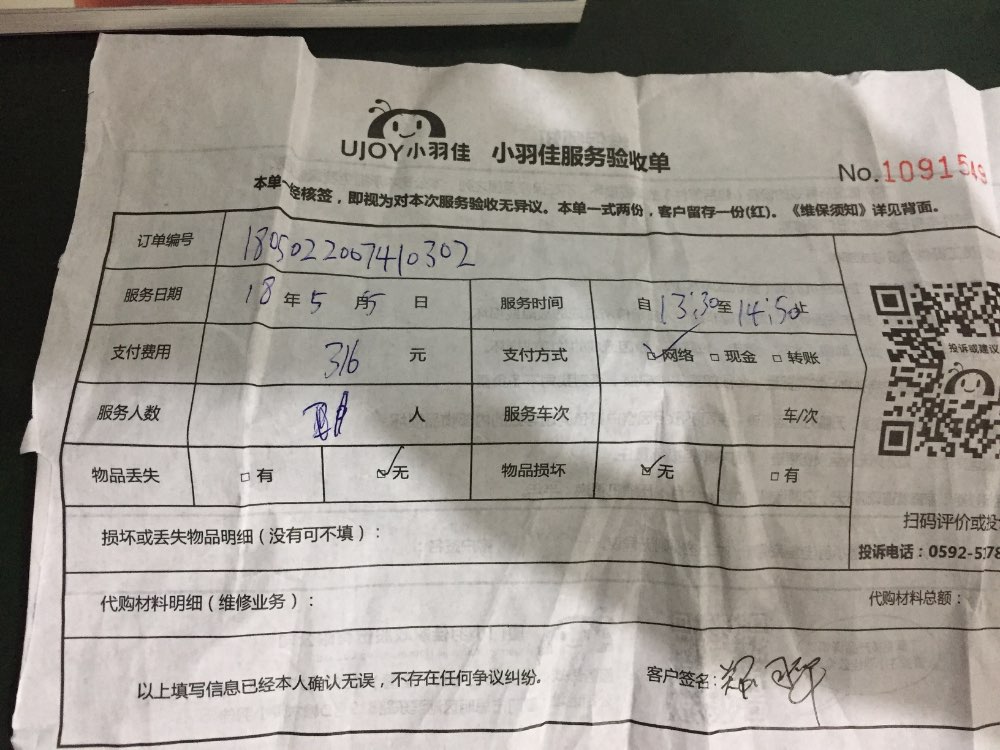 UJOY小羽佳 小羽佳服务验收单
No.1091549
本单一经核签，即视为对本次服务验收无异议。本单一式两份，客户留存一份(红)。《维保须知》详见背面。
订单编号 1805022007410302
服务日期 18 年 5 月 5 日 服务时间 自 13:30 至 14:50 止
支付费用 316 元 支付方式 ☑网络 □现金 □转账
服务人数 人 服务车次 车/次
物品丢失 □有 ☑无 物品损坏 ☑无 □有
投诉或建议
损坏或丢失物品明细（没有可不填）：
扫码评价或投
投诉电话：0592-578
代购材料明细（维修业务）： 代购材料总额：
以上填写信息已经本人确认无误，不存在任何争议纠纷。 客户签名：